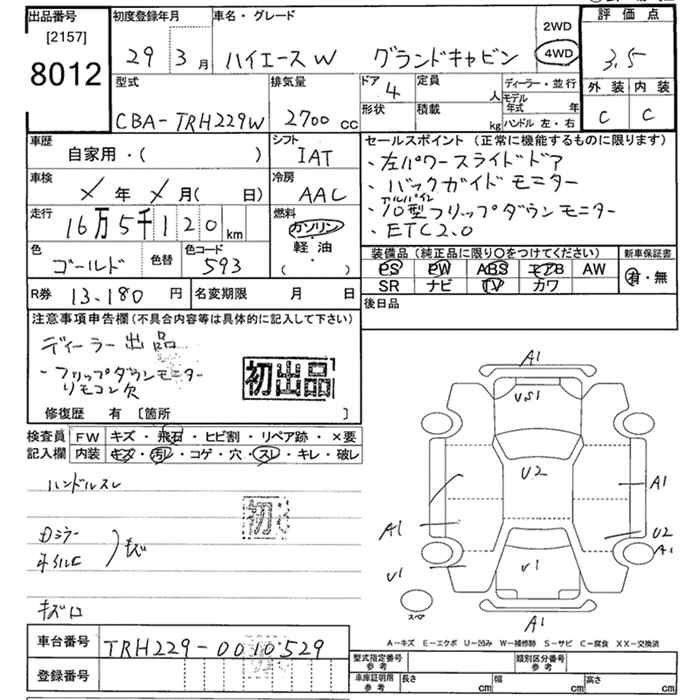 出品番号
[2157]
8012
初度登録年月
29 3月
車名・グレード
ハイエースW グランドキャビン
2WD
4WD
評価点
3.5
外装 内装
C C
型式
CBA-TRH229W
排気量
2700cc
ドア
4
形状
定員
人
積載
kg
ディーラー・並行
モデル年式 年
ハンドル 左・右
車歴
自家用・( )
シフト
IAT
車検
メ年メ月( 日)
冷房
AAC
走行
16万5千120km
燃料
ガソリン
軽油
( ・ )
色
ゴールド
色替
色コード
593
R券
13.180円
名変期限 月 日
セールスポイント(正常に機能するものに限ります)
・左パワースライドドア
・バックガイドモニター
アルパイン
・10型フリップダウンモニター
・ETC2.0
装備品(純正品に限り○をつけてください)
PS PW ABS エアB AW
SR ナビ TV カワ
新車保証書
有・無
後日品
注意事項申告欄(不具合内容等は具体的に記入して下さい)
ディーラー出品
・フリップダウンモニター
リモコン欠
初出品
修復歴 有[箇所 ]
検査員
記入欄
FW キズ・飛石・ヒビ割・リペア跡・×要
内装 キズ・汚レ・コゲ・穴・スレ・キレ・破レ
ハンドルスレ
初
Dミラー
ホイルC
キズ
キズ口
A1
US1
U2
A1
A1
U2
A1
U1
U1
スペア
A1
A-キズ E-エクボ U-凹み W-補修跡 S-サビ C-腐食 XX-交換済
車台番号
TRH229-0010529
登録番号
型式指定番号
参考
類別区分番号
参考
車庫証明用
参考
長さ cm
幅 cm
高さ cm